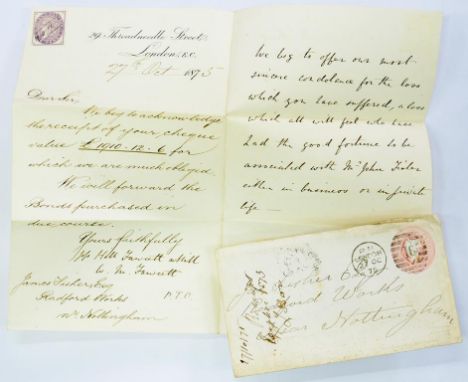 29 Threadneedle Street,
London, E.C.
27th Oct 1875
Dear Sir,
We beg to acknowledge
the receipt of your cheque
value £1910-12-6 for
which we are much obliged.
We will forward the
Bonds purchased in
due course.
Yours faithfully
Hill Fawcett & Hill
James Fisher Esq
Radford Works
Nr. Nottingham
P.T.O.
We beg to offer our most
sincere condolence for the loss
which you have suffered, a loss
which all will feel who have
had the good fortune to be
associated with Mr John Fisher
either in business or in private
life —
Fisher
Radford Works
Near Nottingham